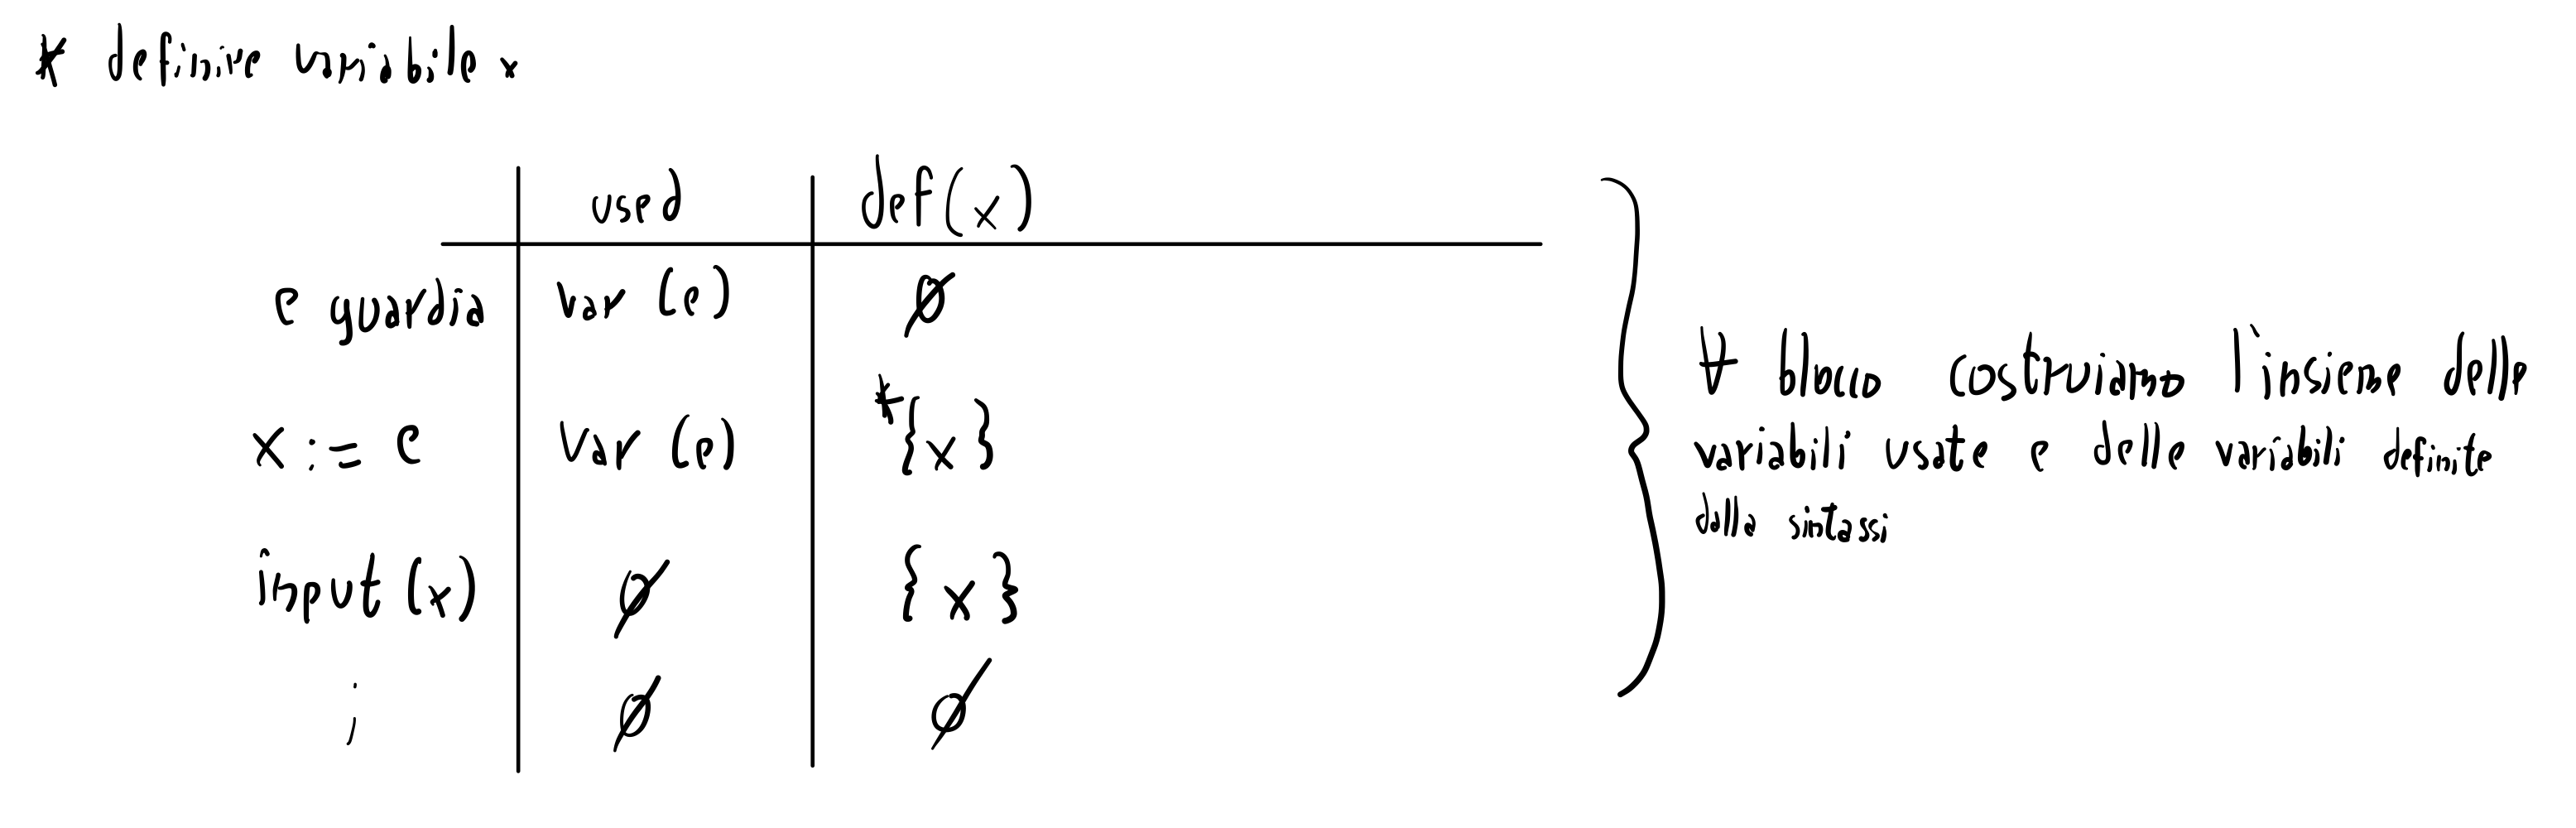 * definire variabile x
used def(x)
e guardia var (e) ∅
x := e var (e) *{x}
input (x) ∅ {x}
; ∅ ∅
∀ blocco costruiamo l'insieme delle
variabili usate e delle variabili definite
dalla sintassi